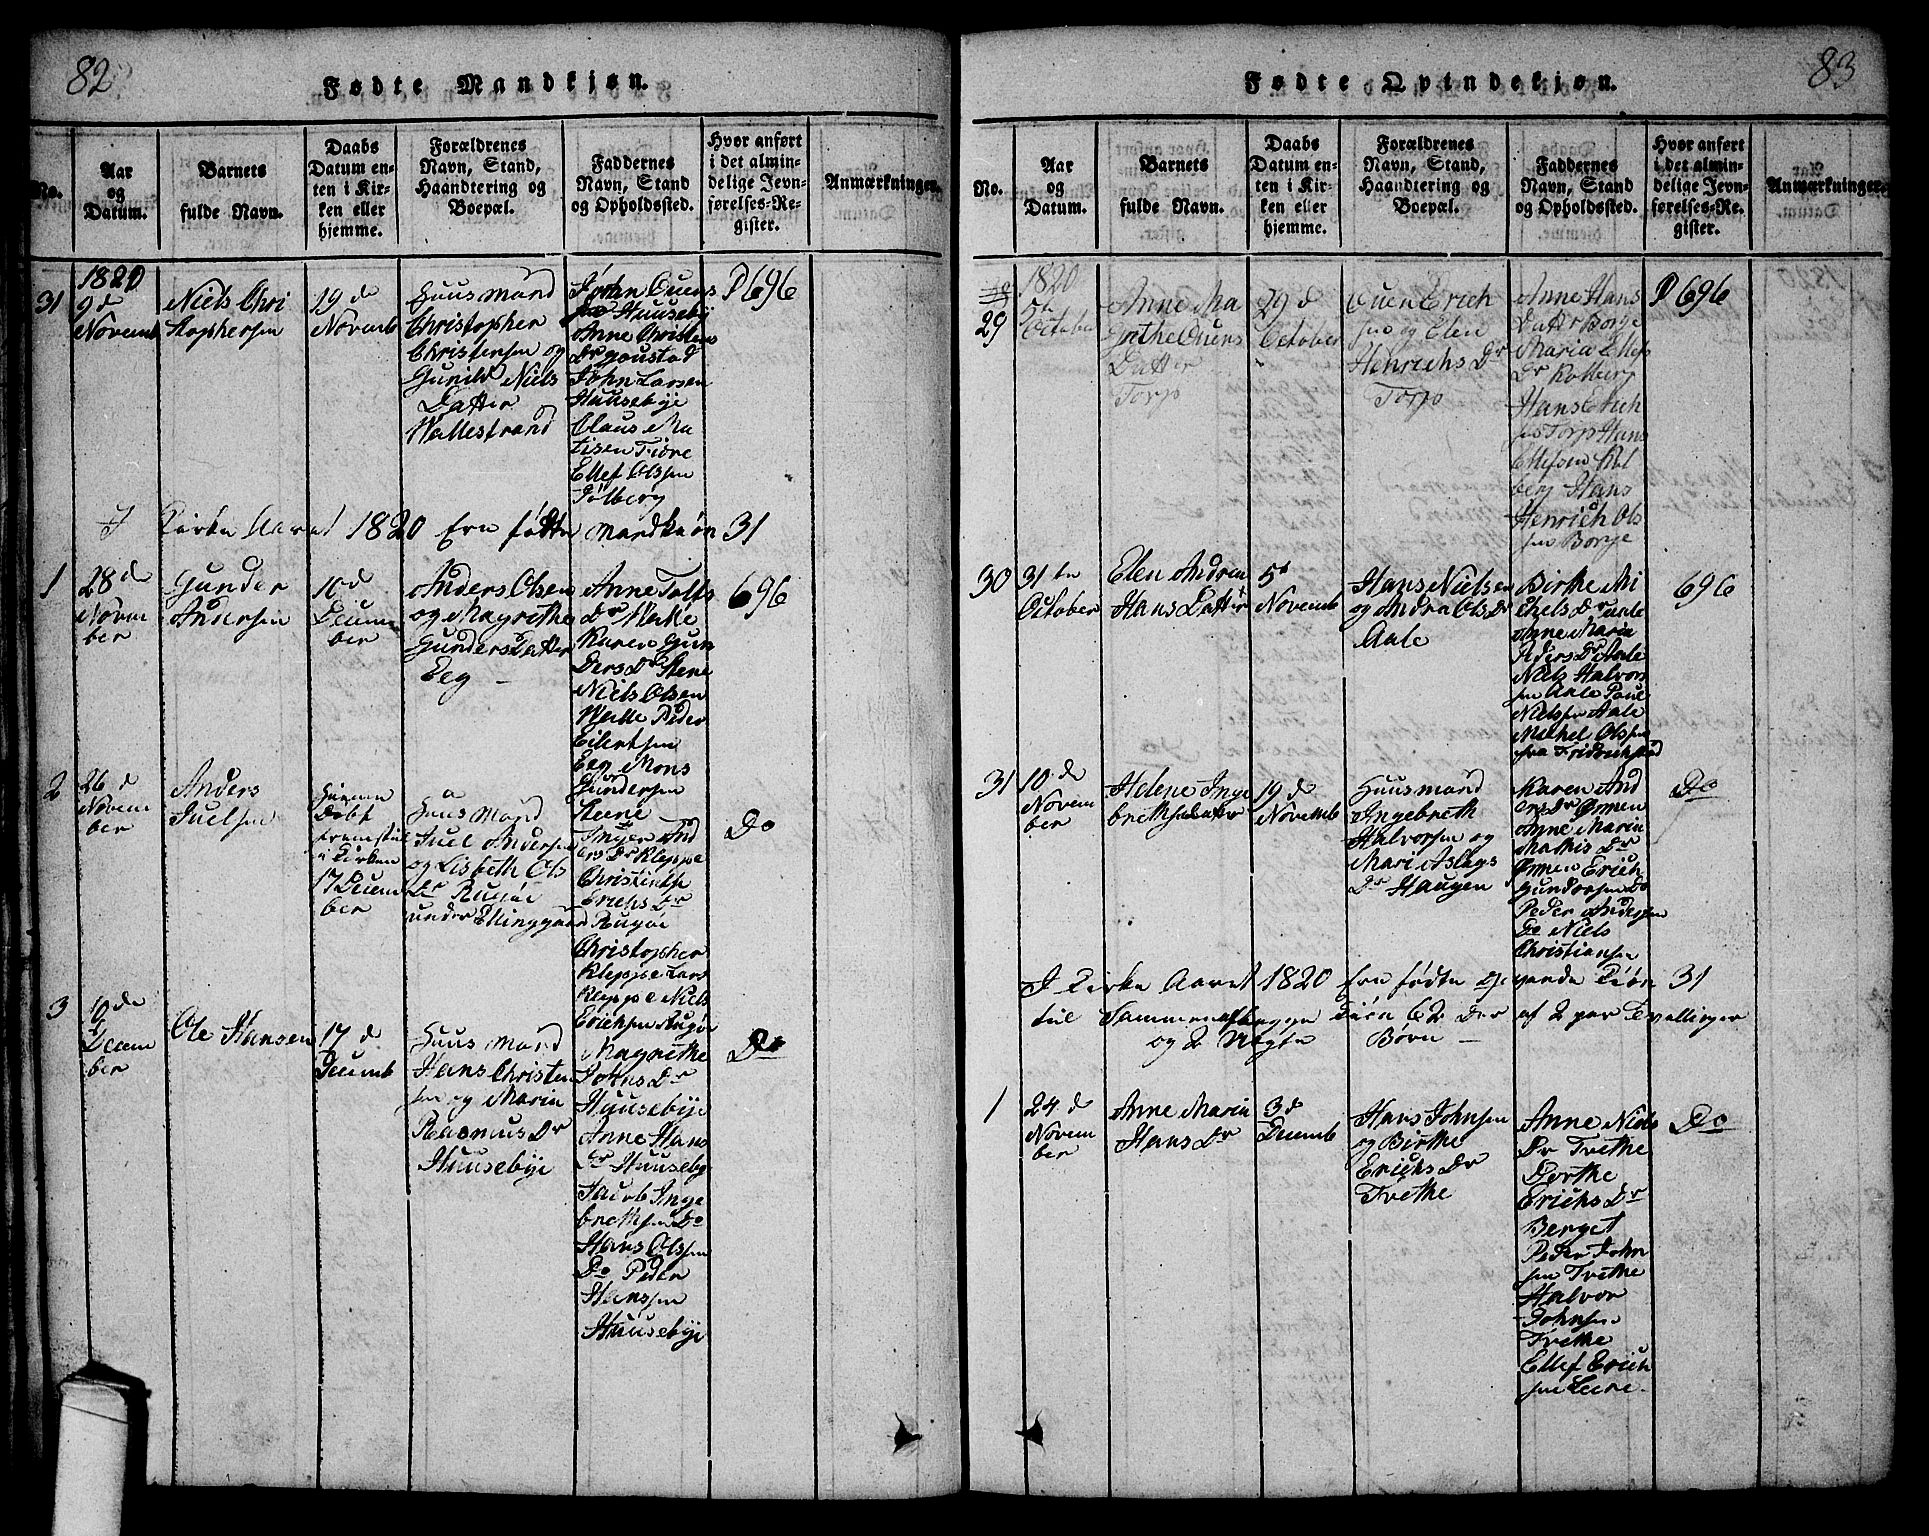 82
Fødte Mandkjøn.
No.
Aar
og
Datum.
Barnets
fulde Navn.
Daabs
Datum en-
ten i Kir-
ken eller
hjemme.
Forældrenes
Navn, Stand,
Haandtering og
Boepæl.
Faddernes
Navn, Stand
og Opholdssted.
Hvor anført
i det almin-
delige Jevn-
førelses-Re-
gister.
Anmærkninger.
31
1820
9d
Novemb
Niels Chri
stophersen
19 d
Novemb
Huusmand
Christopher
Christensen og
Gunild Niels
Datter
Wallestrand
John Ouens
Huusebÿ
Anne Christens
Dr gaustad
John Larsen
Huusebÿe
Claus Ma
tisen Fiøre
Ellef Olssen
Tølberg
P 696
I Kirke Aaret 1820 Ere fødte Mandkøn 31
1
28 de
Novem
ber
Gunder
Andersen
10 d
Decem
ber
Anders Olsen
og Magrethe
Gunders Datter
Eeg
Anne Tolfs
Dr Werke
Karen Gun
ders Dr Kene
Niels Olsen
Walle Peder
Eilertsen
Eeg Mons
Gundersen
Keene
696
2
26 d
Novem
ber
Anders
Juelsen
Hiemme
Døbt
fremstil
i Kirken
17 Decem
ber
Huus Mand
Juel Andersen
og Lisbeth Ols
Dr Rugøe
under Ellinggaard
Inger And
ers Dr Kleppe
Christinthe
Erichs Dr
Rugøe
Christopher
Kleppe Lars
Kleppe Niels
Erichsen Rugøe
Do
3
10 de
Decem
ber
Ole Hansen
17 d
Decemb
Huus Mand
Hans Christen
sen og Maria
Rasmus Dr
Huusebÿe
Magrethe
Johns Dr
Huusebÿe
Anne Hans
Dr Huusebÿ
Jacob Inge
brethsen Do
Hans Olssen
Do Peder
Hanssen
Huusebÿe
Do
83
Fødte Qvindekjøn.
No.
Aar
og
Datum.
Barnets
fulde Navn.
Daabs
Datum en-
ten i Kir-
ken eller
hjemme.
Forældrenes
Navn, Stand,
Haandtering og
Boepæl.
Faddernes
Navn, Stand
og Opholdssted.
Hvor anført
i det almin-
delige Jevn-
førelses-Re-
gister.
Anmærkninger.
29
1820
5te
October
Anne Ma
grethe Ouens
Datter
Torp
29 d
October
Ouen Erich
sen og Elen
Henrichs Dr
Torp
Anne Hans
Datter Borge
Maria Ellefs
Dr Kolberg
Hans Erich
sen Torp Hans
Ellefsen Kol
berg Hans
Henrich Ols
sen Borge
P 696
30
31 te
October
Elen Andrea
Hans Datter
5te
Novemb
Hans Nielsen
og Andrea Ols Dr
Aale
Birthe Mi
chels Dr Aale
Anne Maria
Peders Dr Aale
Niels Halvor
sen Aale Paul
Nielsen Aale
Michel Olssen
fra Fridrichstad
696
31
10 de
Novem
ber
Helene Inge
breths Datter
19 de
Novemb
Huusmand
Ingebreth
Halvorsen og
Mari Aslags
Dr Haugen
Karen And
ers Dr Ørmen
Anne Maria
Mathis Dr
Ørmen Erich
Gundersen Do
Peder Andersen
Do Niels
Christiansen
Do
I Kirke Aaret 1820 Ere fødte Qvende Kiøn 31
til Sammen af begge Kiøn 62 Der af 2 par Tvillinger
og 2 Uægte Børn
1
24 d
Novem
ber
Anne Maria
Hans Dr
3 d
Decemb
Hans Johnsen
og Birthe
Erichs Dr
Trethe
Anne Niels
Dr Trethe
Dorthe
Erichs Dr
Berget
Peder John
sen Trethe
Halvor
Johnsen
Trethe
Ellef Erich
sen Leere
Do